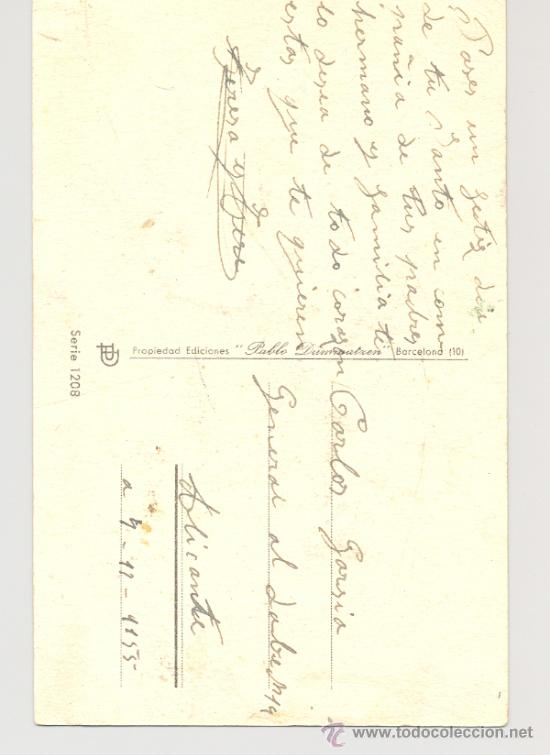 Pases un feliz dia
de tu Santo en com-
pañia de tus padres
hermano y familia te
lo desea de todo corazon
estas que te quieren
Teresa y
Propiedad Ediciones " Pablo Dümmatzen" Barcelona (10)
PD
Serie 1208
Carlos Garsia
General
Alicante
a 4-11-1955
www.todocoleccion.net